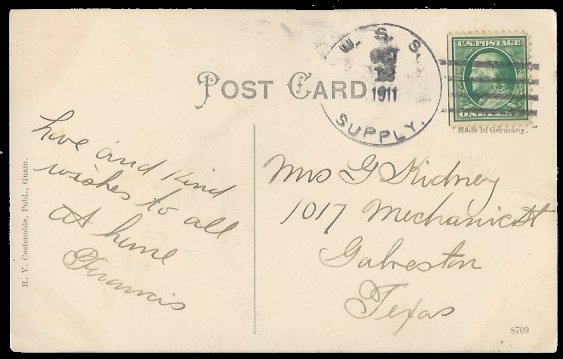 U. S. S.
OCT
1911
SUPPLY.
U.S. POSTAGE
ONE CENT
POST CARD
Made in Germany.
Love and kind
wishes to all
at home
Francis
Mrs G Kidney
1017 Mechanic St
Galveston
Texas
H. V. Costenoble, Publ., Guam.
8709